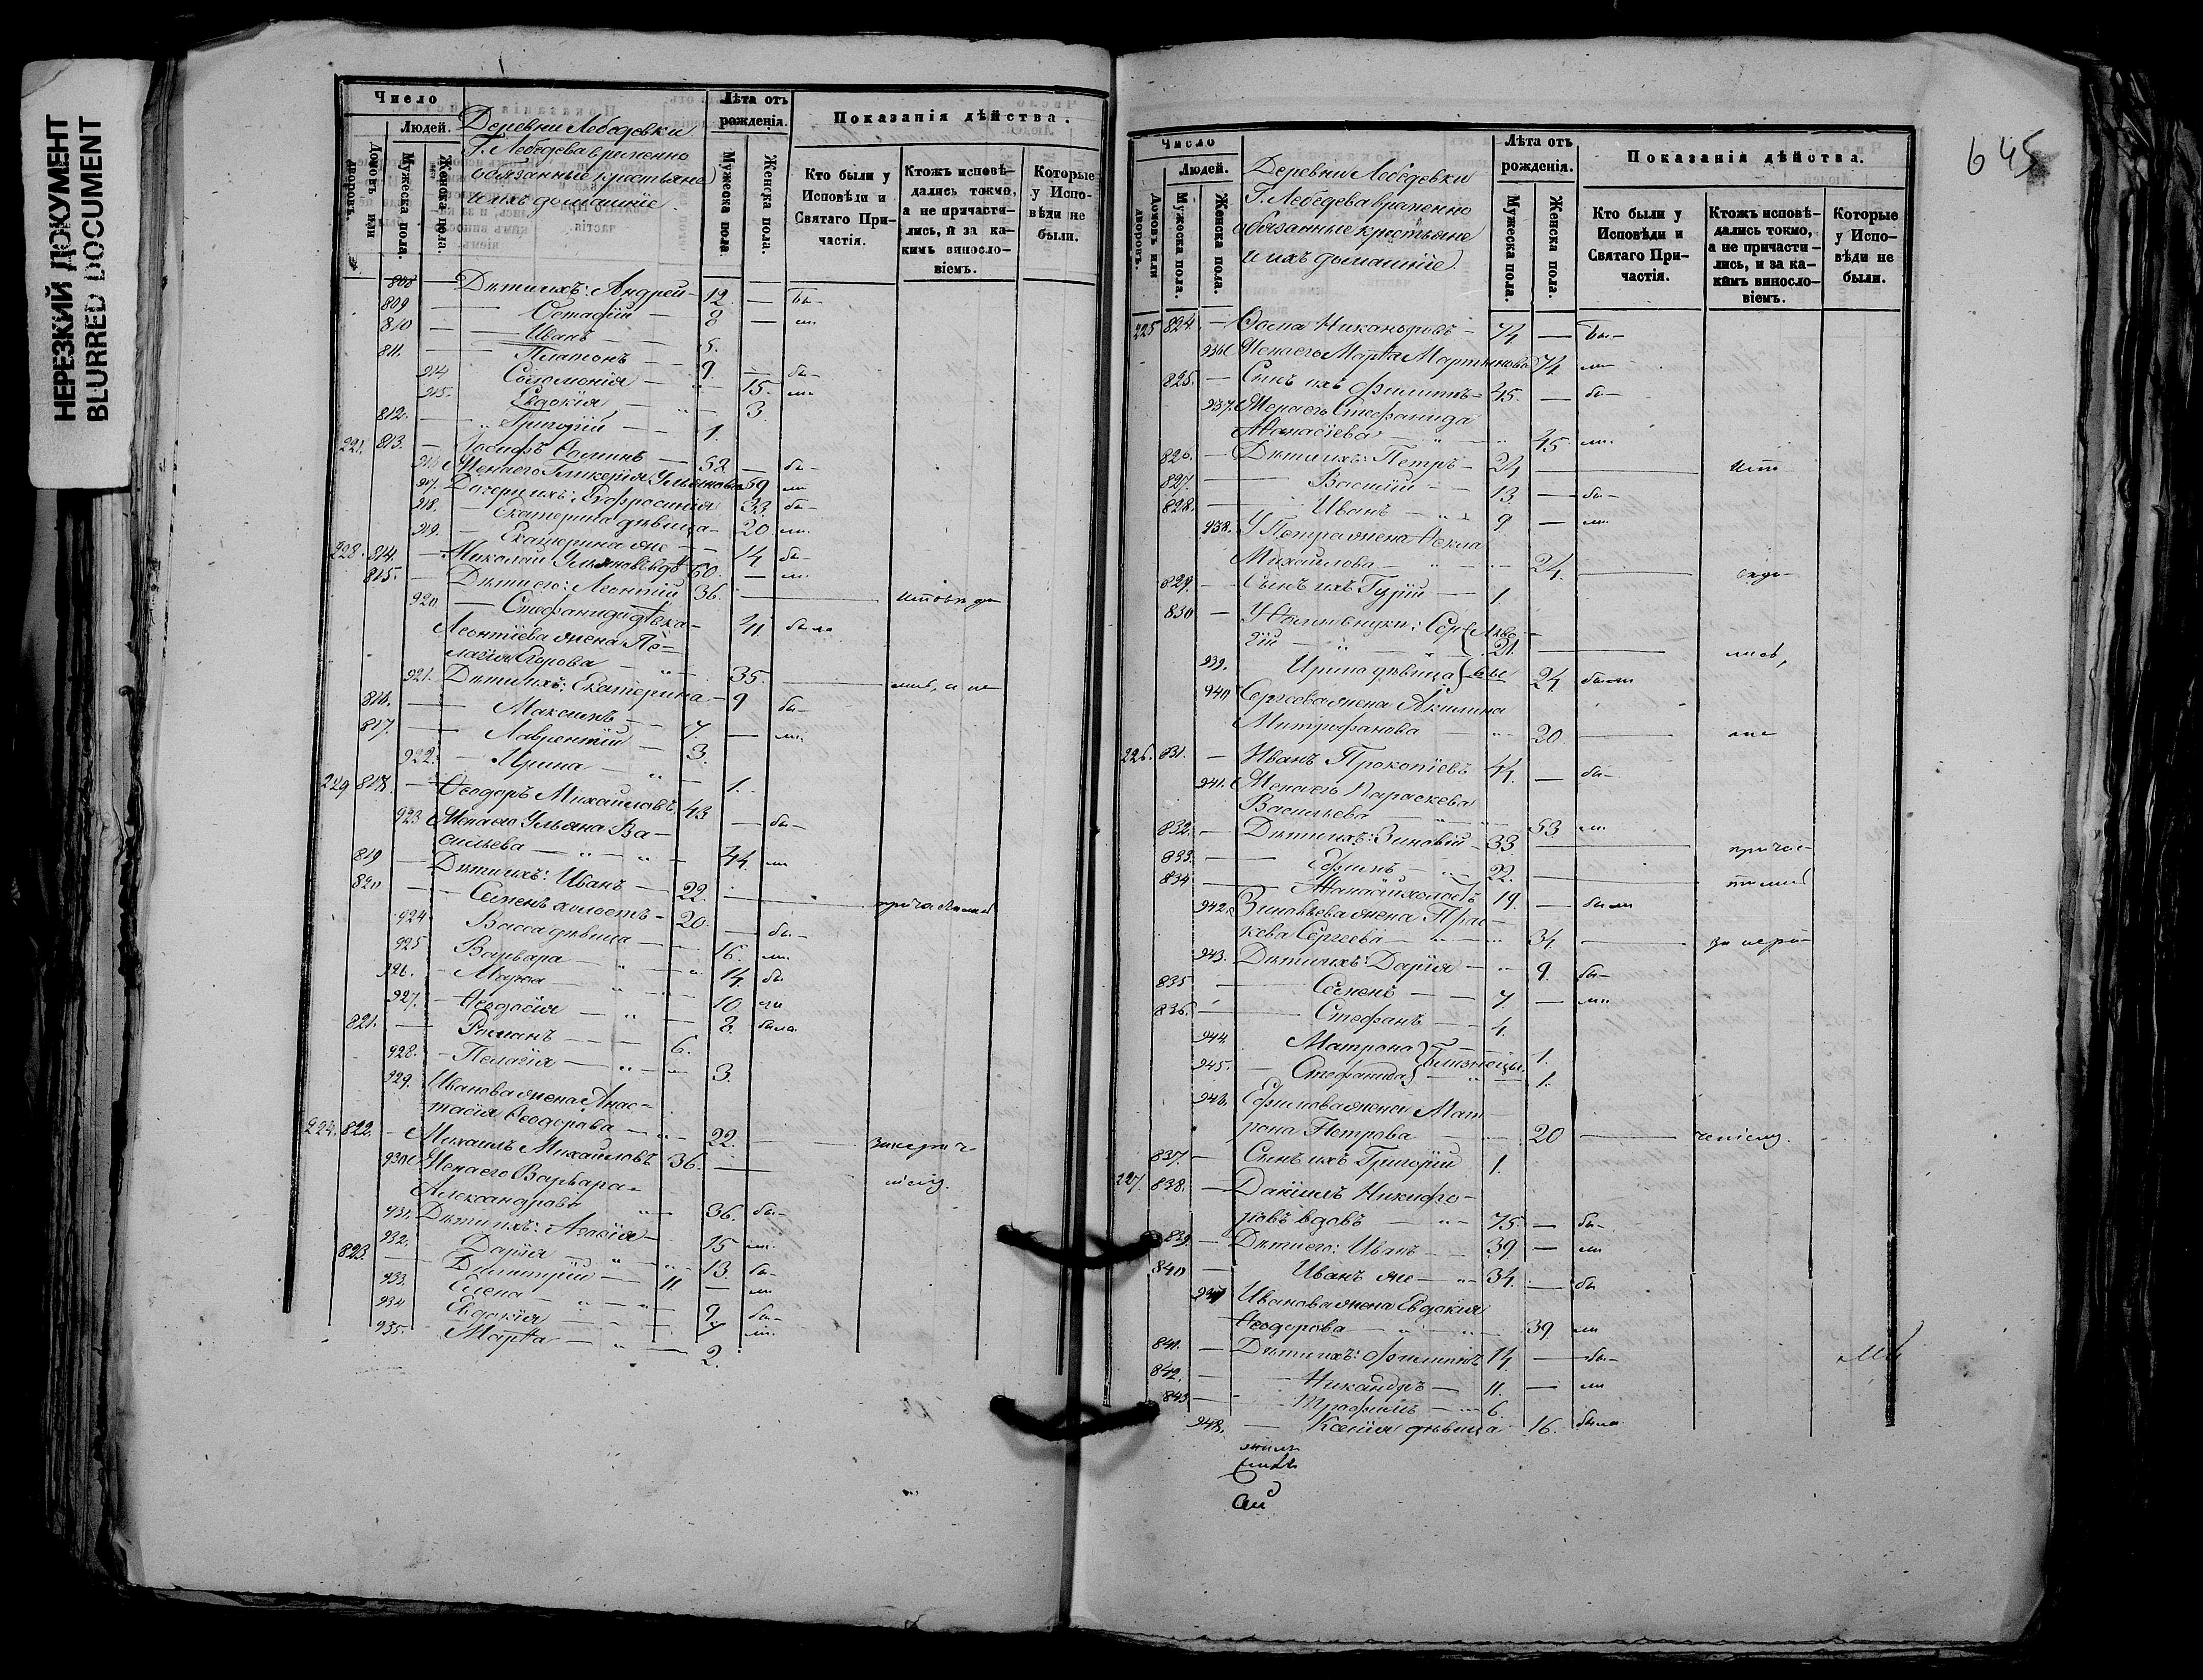 НЕРЕЗКИЙ ДОКУМЕНТ
BLURRED DOCUMENT
Число
Людей.
Домовъ или дворовъ.
Мужеска пола.
Женска пола.
Деревни Лебедевки
Г. Лебедева временно
обязанные крестьяне
и ихъ домашніе.
Лѣта отъ рожденія.
Мужеска пола
Женска пола.
Показанія дѣйства.
Кто были у Исповѣди и Святаго Причастія.
Ктожъ исповѣ-
дались токмо,
а не причасти-
лись, и за ка-
кимъ винсло-
віемъ.
Которые у Испо-
вѣди не были.
808 — Дѣти ихъ: Андрей — 12 — бы-
809 — Остафій — 8 — ли
810 — Иванъ — 5.
811. — Платонъ — 9 — бы-
914 Соломонія — 15. ли
915. Евдокія — 3.
812. — Григорій — 1.
221. 813. — Іосифъ Ѳоминъ — 58. — бы-
916 Жена его Гликерія Ульянова 59 ли
917. Дочери их: Евфросинія 33. бы-
918. — Екатерина дѣвица — 20 ли
919. — Екатерина же — 14 бы-
228. 814. — Николай Ульяновъ вдъ 60. — ли
815. — Дѣти его: Леонтій 36. — исповѣда
920 — Стефанида дѣвка — 41 была
Леонтіева жена Пе-
лагія Егорова — 35. — лись, и не
921. Дѣти ихъ: Екатерина — 9 бы-
816. — Максимъ — 7. — ли
817. — Лаврентій — 3.
922. — Ирина — 1.
229 818. — Ѳеодоръ Михайловъ 43 — бы-
923 Жена его Ульяна Ва-
сильева — 44. ли
819 — Дѣти ихъ: Иванъ — 22. — причастились
820 — Семенъ холостъ — 20. — бы-
924 Васса дѣвица — 16. ли
925 Варвара — 14. бы
926. — Марѳа — 10. ли
927. — Ѳеодосія — 8. была
821. — Романъ — 6.
928. — Пелагія — 3.
929. Иванова жена Анас-
тасія Ѳеодорова — 22. —
224. 822. — Михаилъ Михайловъ 36. —
930 Жена его Варвара
Александрова — 36. бы-
931. Дѣти ихъ: Агафія — 15 ли
932. Дарія — 13. бы-
823. — Димитрій — 11 — ли
933. Елена — 9 бы-
934 Евдокія — 7 ли
935. Марѳа — 2.
645
Число
Людей.
Домовъ или дворовъ.
Мужеска пола.
Женска пола.
Деревни Лебедевки
Г. Лебедева временно
обязанные крестьяне
и ихъ домашніе.
Лѣта отъ рожденія.
Мужеска пола.
Женска пола.
Показанія дѣйства.
Кто были у Исповѣди и Святаго Причастія.
Ктожъ исповѣ-
дались токмо,
а не причасти-
лись, и за ка-
кимъ винсло-
віемъ.
Которые у Испо-
вѣди не были.
225 824. — Ѳома Никаноровъ — 74 — бы-
936 Жена его Марѳа Мартынова 74 ли
825. — Сынъ ихъ Филиппъ — 45. — бы-
937. Жена его Стефанида
Аѳанасіева — 45 ли
826. — Дѣти ихъ: Петръ — 24 —
827. — Василій — 13. — бы-
828. — Иванъ — 9 — ли
938. У Петра жена Ѳекла
Михайлова — 24. —
829. — Сынъ ихъ Гурій — 1.
830 — У Ѳомы внуки: Сер-
гій — 21. — лись,
939. Ирина дѣвица 24 были
940 Сергѣева жена Акилина
Митрофанова — 20 — не
226. 831. — Иванъ Прокопіевъ 44. — бы-
941. Жена его Параскева
Васильева — 53 ли
832. — Дѣти ихъ: Зиновій — 33 — причас-
833. — Ефимъ — 22. — тились
834 — Аѳанасій холостъ 19. — были
942. Зиновьева жена Прас-
кева Сергѣева — 34. —
943. Дѣти ихъ: Дарія — 9. бы-
835 — Семенъ — 7 — ли
836. — Стефанъ — 4.
944. Матрона } близнецы 1.
945. — Стефанида } — 1.
946. Ефимова жена Мат-
рона Петрова — 20 —
837. — Сынъ ихъ Григорій 1.
227. 838. — Даніилъ Никифо-
ровъ вдовъ — 75. — бы-
839. — Дѣти его: Иванъ — 39. — ли
840 — Иванъ же — 34. — бы
947 Иванова жена Евдокія
Ѳеодорова — 39 ли
841. — Дѣти ихъ: Филиппъ 14. — бы-
842. — Никандръ — 11. — ли
843 — Трофимъ — 6.
948. — Ксенія дѣвица — 16. была